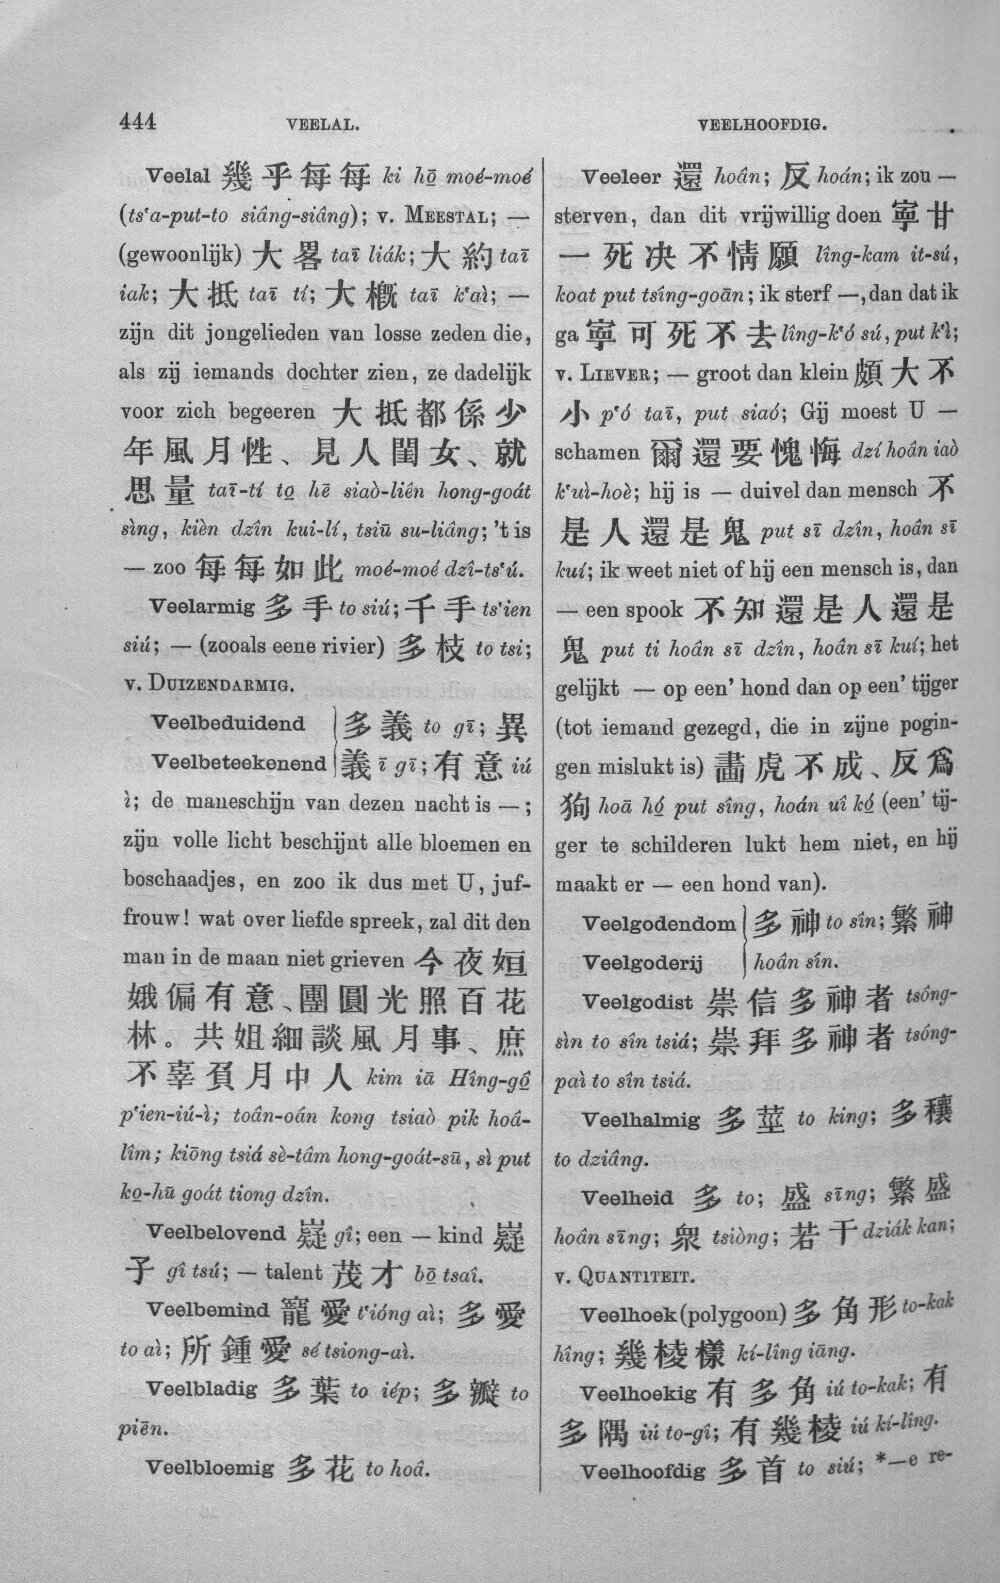 444
VEELAL.
VEELHOOFDIG.
Veelal 幾乎每每 ki hō̲ moé-moé
(ts‘a-put-to siâng-siâng); v. MEESTAL; —
(gewoonlijk) 大畧 taī liák; 大約 taī
iak; 大抵 taī tí; 大概 taī k‘aì; —
zijn dit jongelieden van losse zeden die,
als zij iemands dochter zien, ze dadelijk
voor zich begeeren 大抵都係少
年風月性、見人閨女、就
思量 taī-tí to̲ hē siaò-liên hong-goát
sìng, kièn dzîn kui-lí, tsiū su-liâng; 't is
— zoo 每每如此 moé-moé dzî-ts‘ú.
Veelarmig 多手 to siú; 千手 ts‘ien
siú; — (zooals eene rivier) 多枝 to tsi;
v. DUIZENDARMIG.
Veelbeduidend 多義 to gī; 異
Veelbeteekenend 義 ī gī; 有意 iú
ì; de maneschijn van dezen nacht is —;
zijn volle licht beschijnt alle bloemen en
boschaadjes, en zoo ik dus met U, juf-
frouw! wat over liefde spreek, zal dit den
man in de maan niet grieven 今夜姮
娥偏有意、團圓光照百花
林。共姐細談風月事、庶
不辜負月中人 kim iā Hîng-gô̲
p‘ien-iú-ì; toân-oán kong tsiaò pik hoâ-
lîm; kiōng tsiá sè-tâm hong-goát-sū, sì put
ko̲-hū goát tiong dzîn.
Veelbelovend 嶷 gî; een — kind 嶷
子 gî tsú; — talent 茂才 bō̲ tsaî.
Veelbemind 寵愛 t‘ióng aì; 多愛
to aì; 所鍾愛 sé tsiong-aì.
Veelbladig 多葉 to iép; 多瓣 to
piēn.
Veelbloemig 多花 to hoâ.
Veeleer 還 hoân; 反 hoán; ik zou —
sterven, dan dit vrijwillig doen 寧甘
一死决不情願 lîng-kam it-sú,
koat put tsíng-goān; ik sterf —, dan dat ik
ga 寧可死不去 lîng-k‘ó sú, put k‘ì;
v. LIEVER; — groot dan klein 頗大不
小 p‘ó taī, put siaó; Gij moest U —
schamen 爾還要愧悔 dzí hoân iaò
k‘uì-hoè; hij is — duivel dan mensch 不
是人還是鬼 put sī dzîn, hoân sī
kuí; ik weet niet of hij een mensch is, dan
— een spook 不知還是人還是
鬼 put ti hoân sī dzîn, hoân sī kuí; het
gelijkt — op een' hond dan op een' tijger
(tot iemand gezegd, die in zijne pogin-
gen mislukt is) 畵虎不成、反爲
狗 hoā hó̲ put sîng, hoán uî kó̲ (een' tij-
ger te schilderen lukt hem niet, en hij
maakt er — een hond van).
Veelgodendom 多神 to sîn; 繁神
Veelgoderij hoân sîn.
Veelgodist 崇信多神者 tsông-
sìn to sîn tsiá; 崇拜多神者 tsóng-
paì to sîn tsiá.
Veelhalmig 多莖 to king; 多穰
to dziâng.
Veelheid 多 to; 盛 sīng; 繁盛
hoân sīng; 衆 tsiòng; 若干 dziák kan;
v. QUANTITEIT.
Veelhoek (polygoon) 多角形 to-kak
hîng; 幾棱樣 kí-lîng iāng.
Veelhoekig 有多角 iú to-kak; 有
多隅 iú to-gî; 有幾棱 iú kí-lîng.
Veelhoofdig 多首 to siú; *—e re-